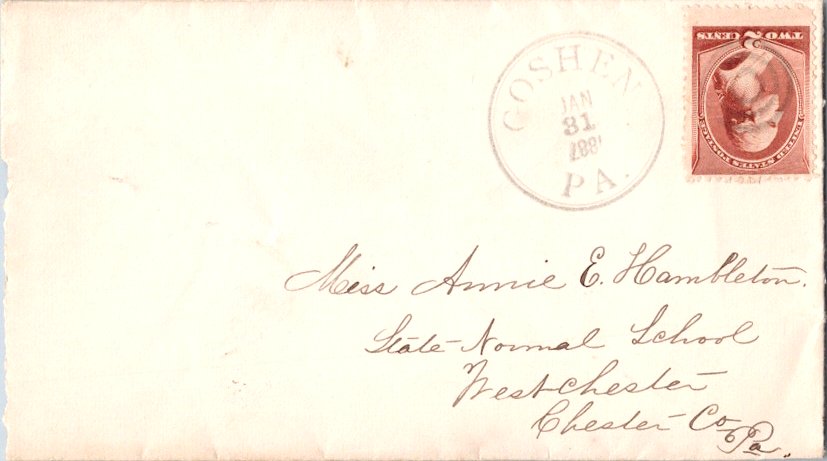 GOSHEN
JAN
31
1887
PA.
TWO 2 CENTS
UNITED STATES POSTAGE
Miss Annie E. Hambleton.
State Normal School
Westchester
Chester Co
Pa.